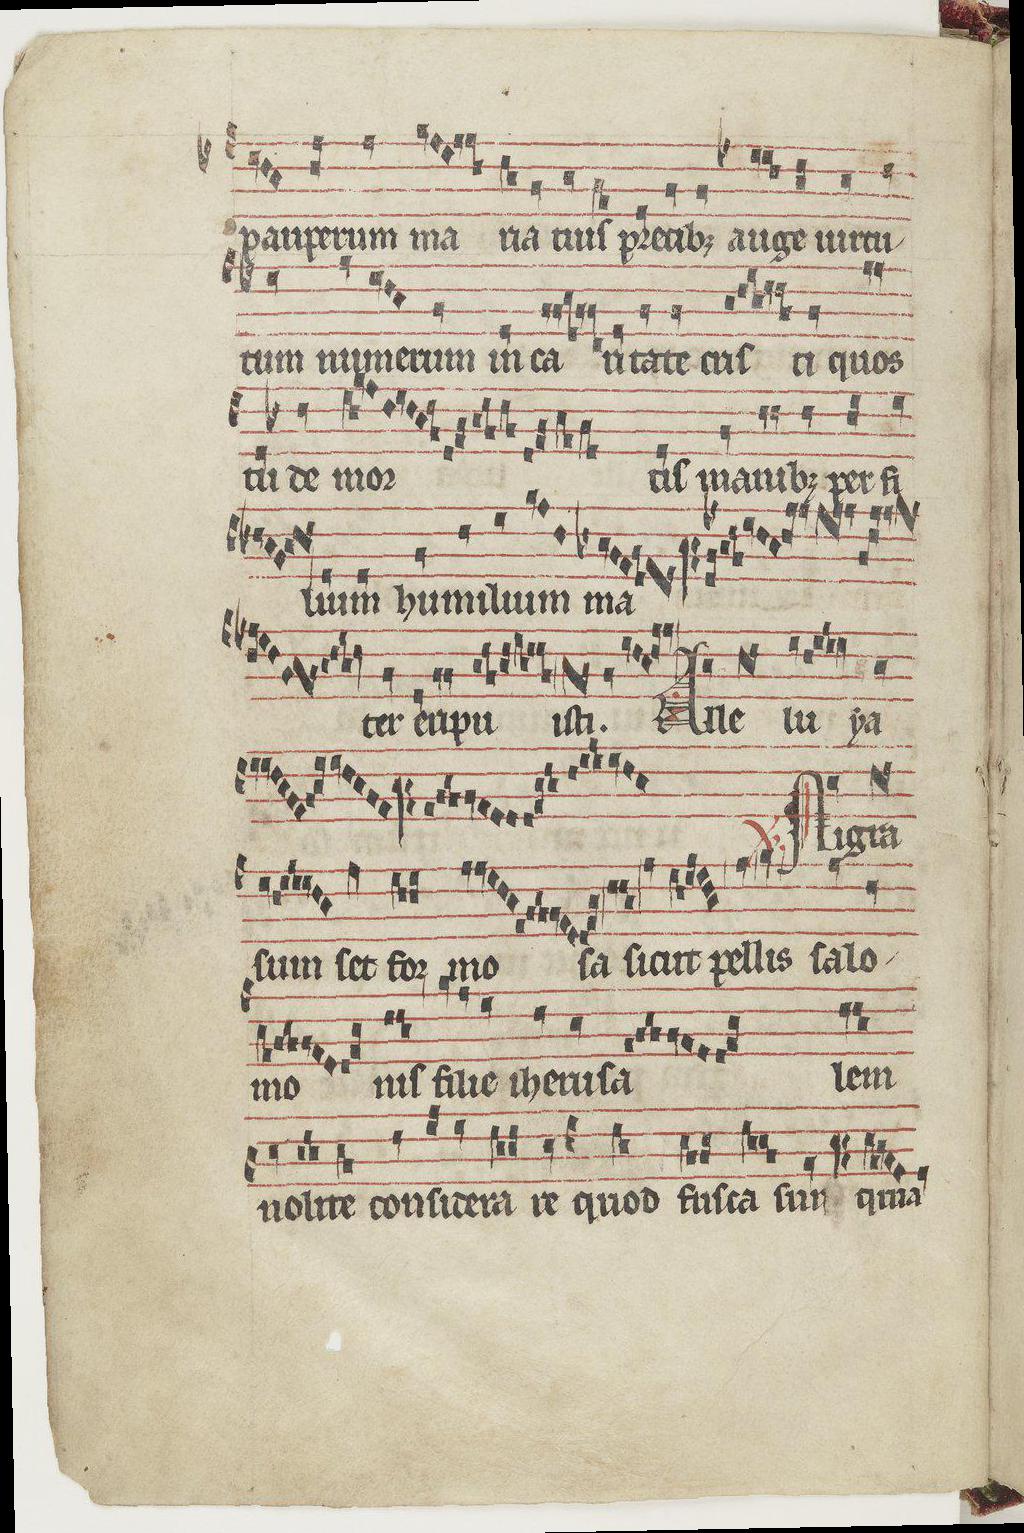 pauperum ma ria tuis precib; auge uirtu
tum numerum in ca ritate cris ti quos
tu de mor tis manib; per fi
lium humilium ma
ter eripu isti. Alle lu ya
V. Nigra
sum set for mo sa sicut pellis salo
mo nis filie iherusa lem
nolite considera re quod fusca sum quia